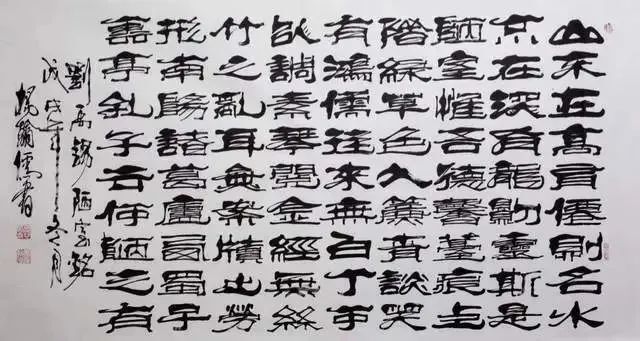 山不在高有僊則名水
不在深有龍則靈斯是
陋室惟吾德馨苔痕上
階綠草色入簾青談笑
有鴻儒往來無白丁可
以調素琴閱金經無絲
竹之亂耳無案牘之勞
形南陽諸葛廬西蜀子
雲亭孔子云何陋之有
劉禹錫陋室銘
戊戌年冬月
翁儒書